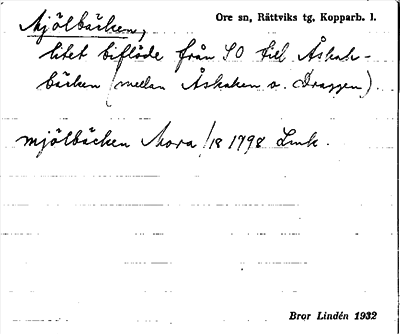 Mjölbäcken,
Ore sn, Rättviks tg, Kopparb. l.
litet biflöde från SO till Åskak-
bäcken (mellan Åskaken o. Draggen).
mjölbäcken Mora 1/18 1798 Lmk.
Bror Lindén 1932